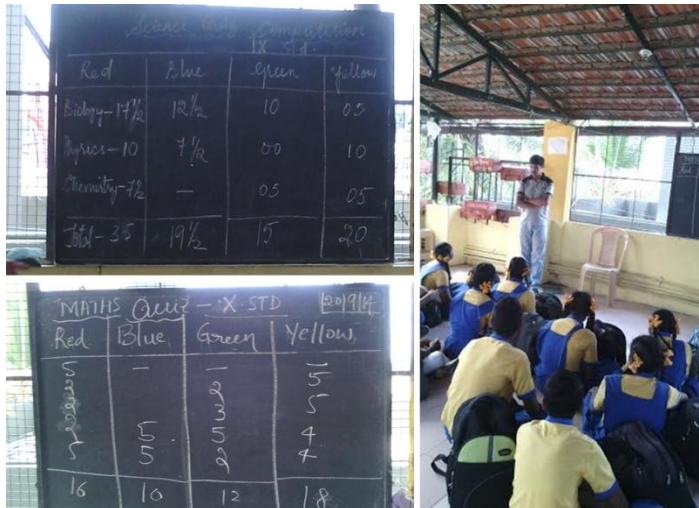 Science Quiz Competition
IX std.
Red Blue Green Yellow
Biology-17½ 12½ 10 05
Physics-10 7½ 00 10
Chemistry-7½ — 05 05
Total-35 19½ 15 20
MATHS Quiz - X STD 20/9/14
Red Blue Green Yellow
5 - - -
2 2 5
2 3 5
2 5 5 4
5 5 2 4
16 10 12 18